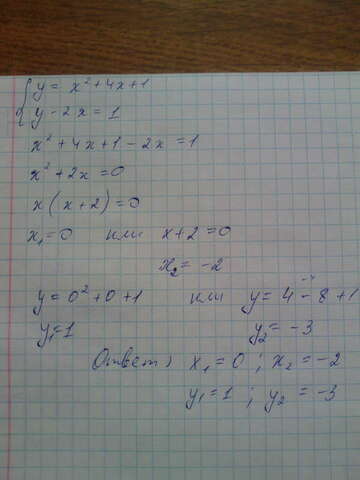 y = x² + 4x + 1
y - 2x = 1
x² + 4x + 1 - 2x = 1
x² + 2x = 0
x(x + 2) = 0
x₁ = 0 или x + 2 = 0
x₂ = -2
y = 0² + 0 + 1 или y = 4 - 8 + 1
y₁ = 1 y₂ = -3
Ответ: x₁ = 0 ; x₂ = -2
y₁ = 1 ; y₂ = -3